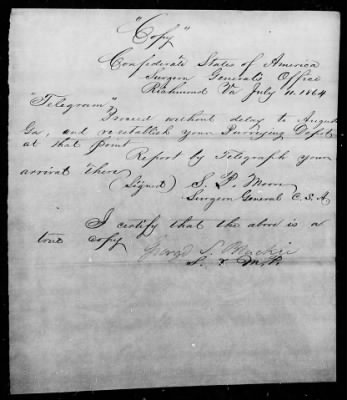 "Copy"
Confederate States of America
Surgeon General's Office
Richmond Va July 11. 1864
"Telegram"
Proceed without delay to August
Ga, and re-establish your Purveying Depot
at that point
Report by Telegraph your
arrival there
(Signed) S. P. Moore
Surgeon General C.S.A.
I certify that the above is a
true copy
George S. Blackie